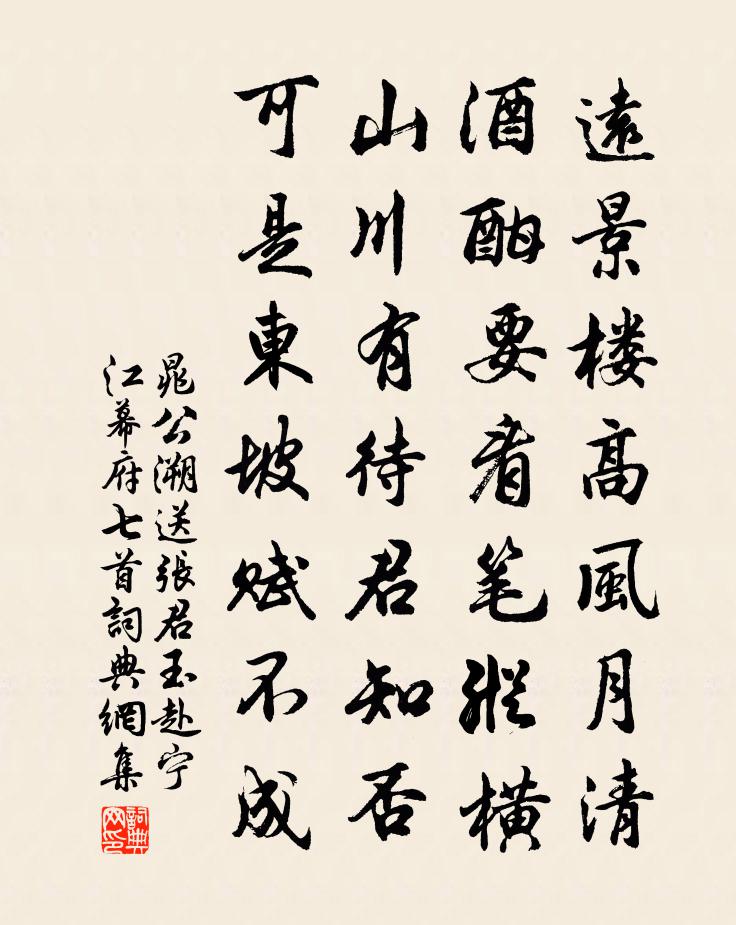 遠景楼高風月清
酒酣要看笔縱橫
山川有待君知否
可是東坡赋不成
晁公溯送張君玉赴宁
江幕府七首詞典網集
詞典
网印